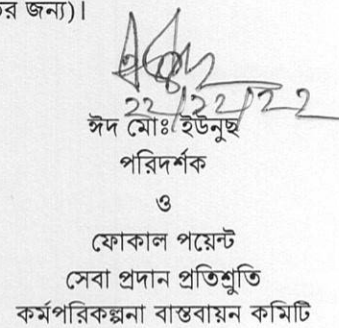 র জন্য)।
২২/১২/২২
ঈদ মোঃ ইউনুছ
পরিদর্শক
ও
ফোকাল পয়েন্ট
সেবা প্রদান প্রতিশ্রুতি
কর্মপরিকল্পনা বাস্তবায়ন কমিটি